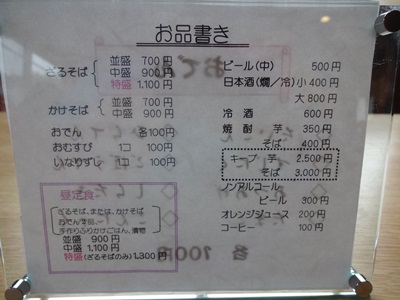 お品書き
ざるそば
並盛 700円
中盛 900円
特盛 1.100円
かけそば
並盛 700円
中盛 900円
おでん 各100円
おむすび 1コ 100円
いなりずし 1コ 100円
昼定食
ざるそば、または、かけそば
おでん
手作りふりかけごはん、漬物
並盛 900円
中盛 1,100円
特盛(ざるそばのみ)1,300円
ビール(中) 500円
日本酒(燗/冷)小400円
大800円
冷酒 600円
焼酎 芋 350円
そば 400円
キープ 芋 2.500円
そば 3.000円
ノンアルコール
ビール 300円
オレンジジュース 200円
コーヒー 100円
おでん
各100円